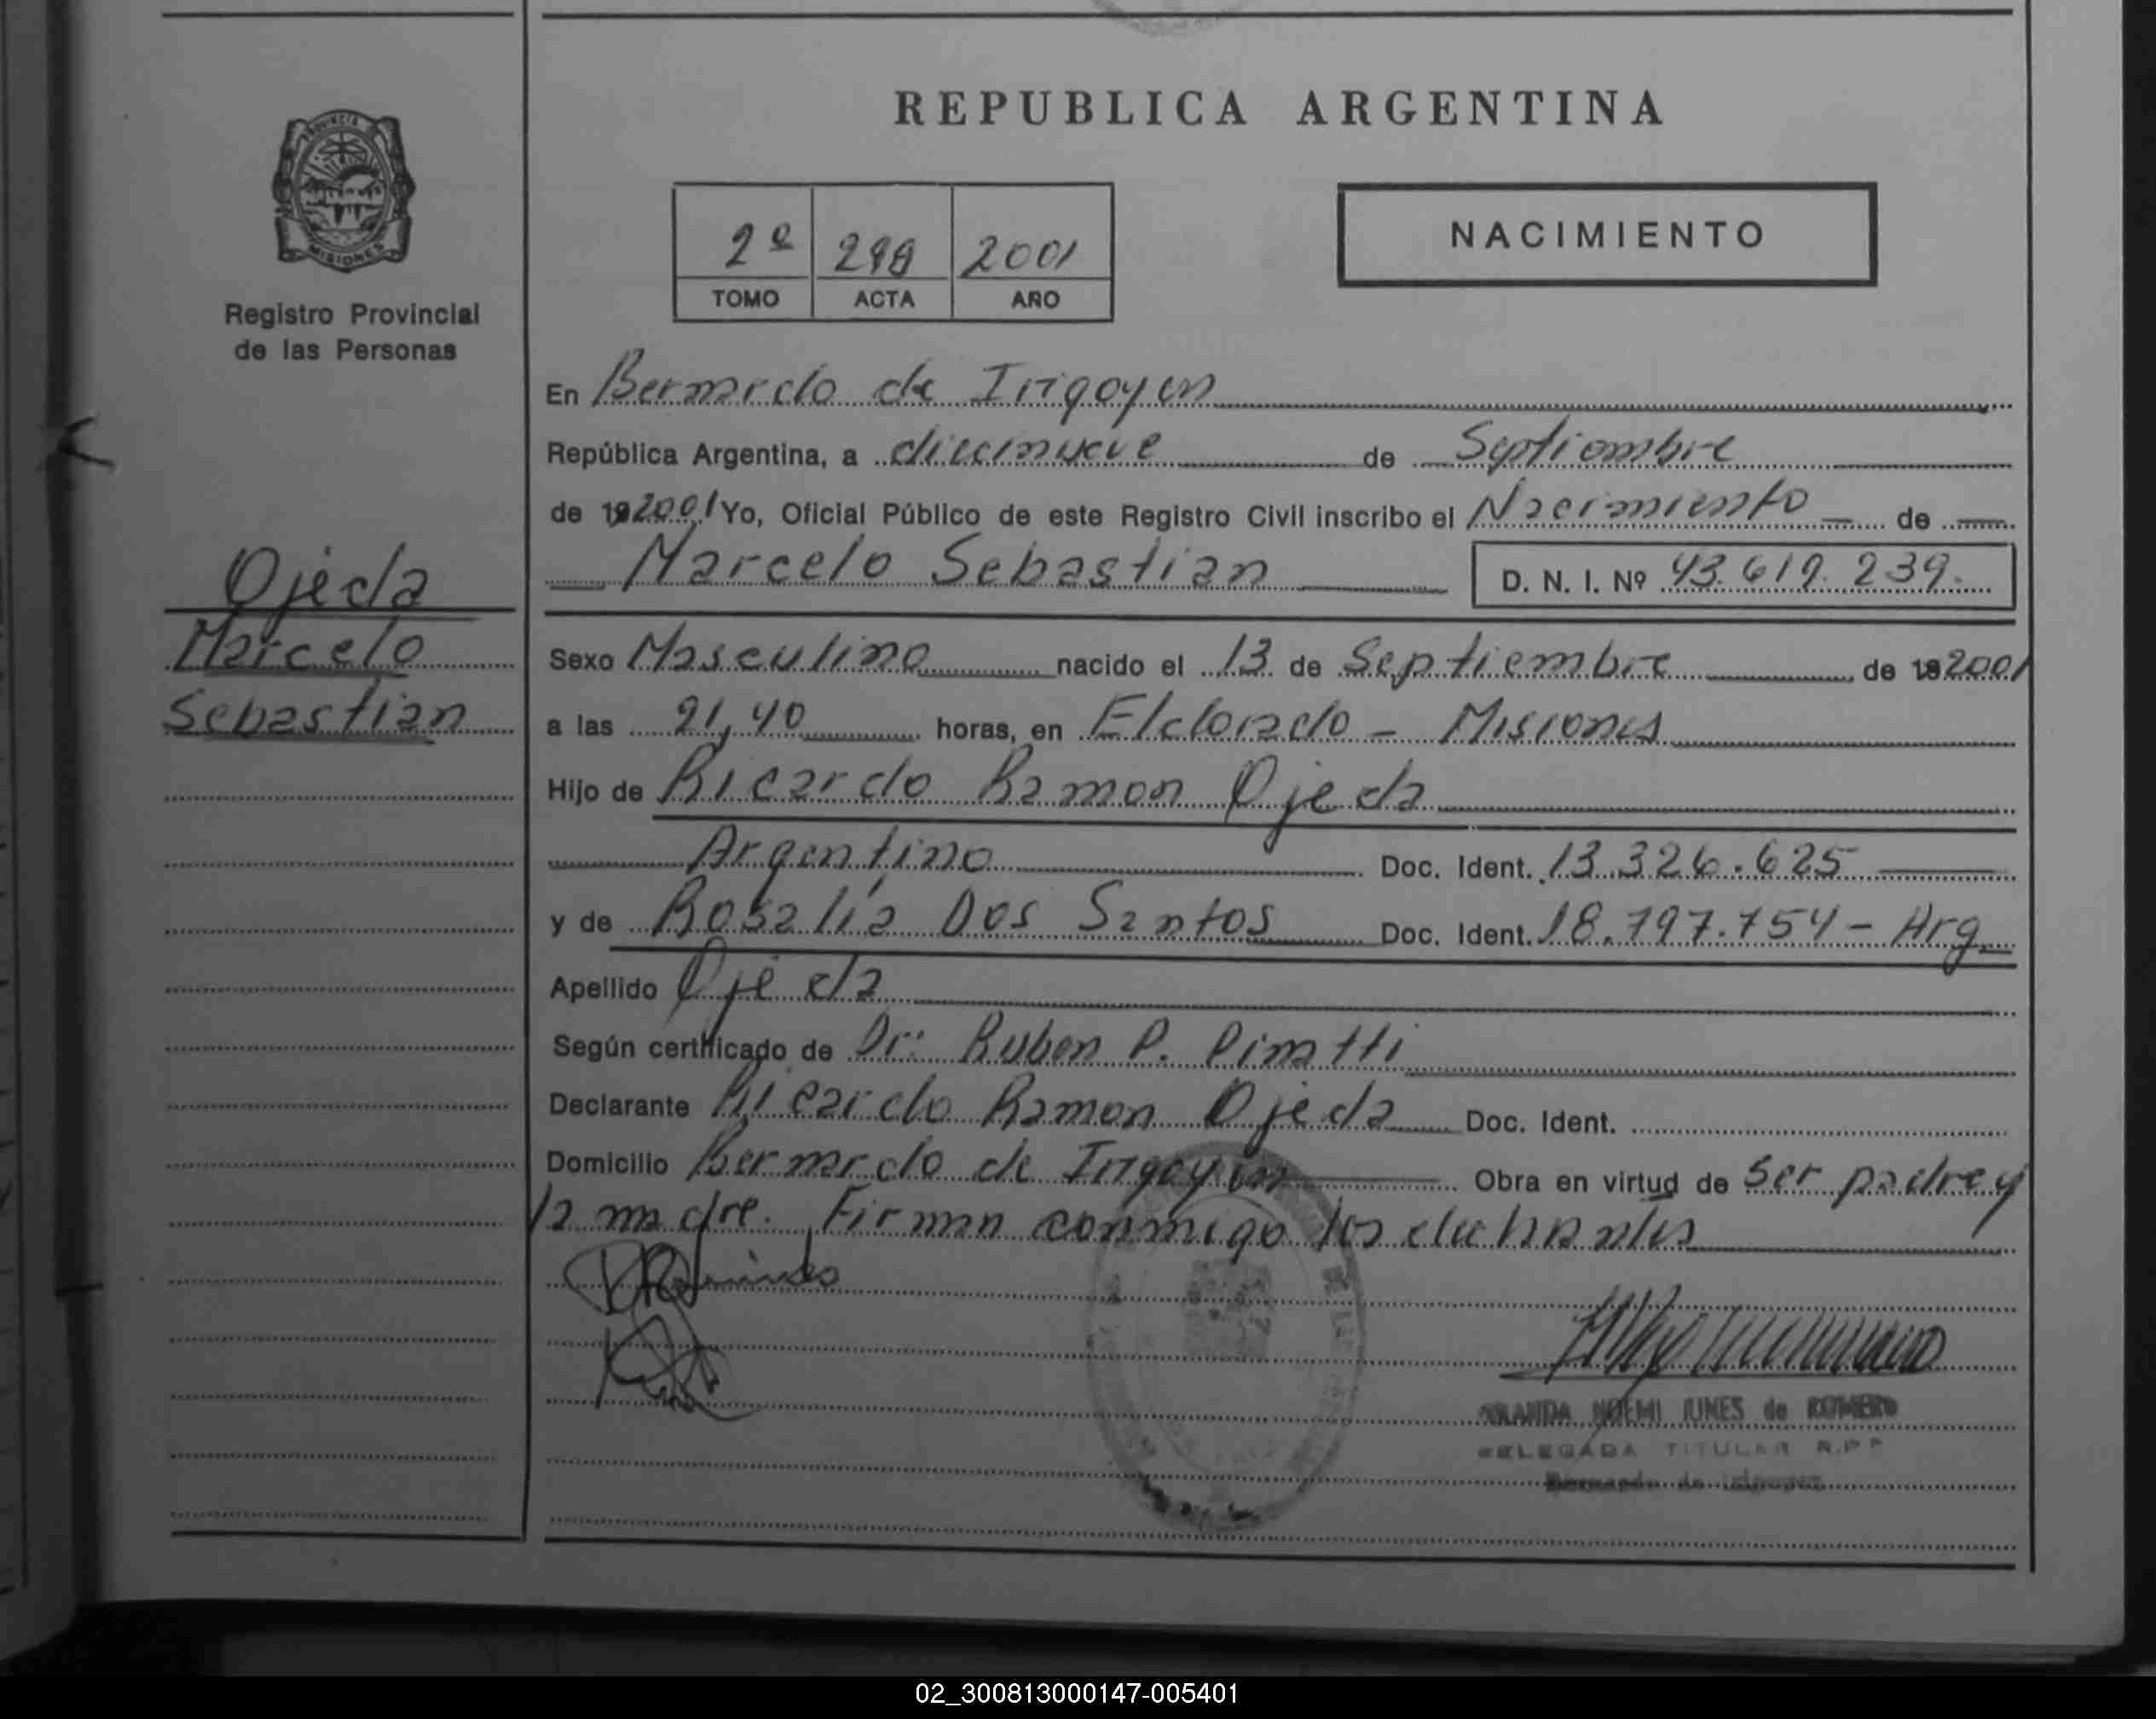 REPUBLICA ARGENTINA
PROVINCIA DE
MISIONES
Registro Provincial
de las Personas
2º 298 2001
TOMO ACTA AÑO
NACIMIENTO
En Bernardo de Irigoyen
República Argentina, a diecinueve de Septiembre
de 192001 Yo, Oficial Público de este Registro Civil inscribo el Nacimiento - de
Marcelo Sebastian D. N. I. Nº 43.619.239.
Ojeda
Marcelo
Sebastian
Sexo Masculino nacido el 13 de Septiembre de 192001
a las 21,40 horas, en Eldorado - Misiones
Hijo de Ricardo Ramon Ojeda
Argentino Doc. Ident. 13.326.625
y de Rosalía Dos Santos Doc. Ident. 18.797.754 - Arg.
Apellido Ojeda
Según certificado de Dr: Ruben P.
Declarante Ricardo Ramon Ojeda Doc. Ident.
Domicilio Bernardo de Irigoyen Obra en virtud de Ser padre y
la madre. Firman conmigo los
NOEMI de ROMERO
DELEGADA TITULAR R.P.P
Bernardo de Irigoyen
02_300813000147-005401